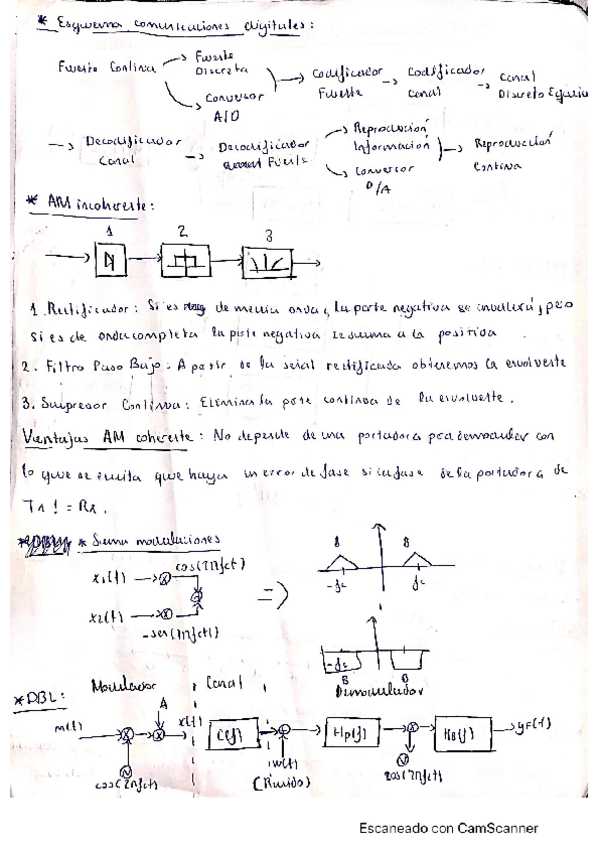 * Esquema comunicaciones digitales:
Fuente Continua
Fuente
Discreta
Conversor
A/D
Codificador
Fuente
Codificador
Canal
Canal
Discreto Equiv
Decodificador
Canal
Decodificador
Fuente
Reproducción
Información
Conversor
D/A
Reproducción
Continua
* AM incoherente:
1 2 3
1. Rectificador: Si es de media onda, la parte negativa se anulará, pero
si es de onda completa la parte negativa se suma a la positiva.
2. Filtro Paso Bajo: A partir de la señal rectificada obtenemos la envolvente
3. Supresor Continua: Elimina la parte continua de la envolvente.
Ventajas AM coherente: No depende de una portadora para demodular con
lo que se evita que haya un error de fase si la fase de la portadora de
Tx != Rx.
* Suma modulaciones
x1(t) cos(2πfct)
x2(t)
-sen(2πfct)
=>
B B
-fc fc
-fc
B B
* DBL: Modulador Canal Demodulador
A
m(t) x(t) C(f) Hp(f) HB(f) yF(t)
cos(2πfct) w(t) cos(2πfct)
(Ruido)
Escaneado con CamScanner